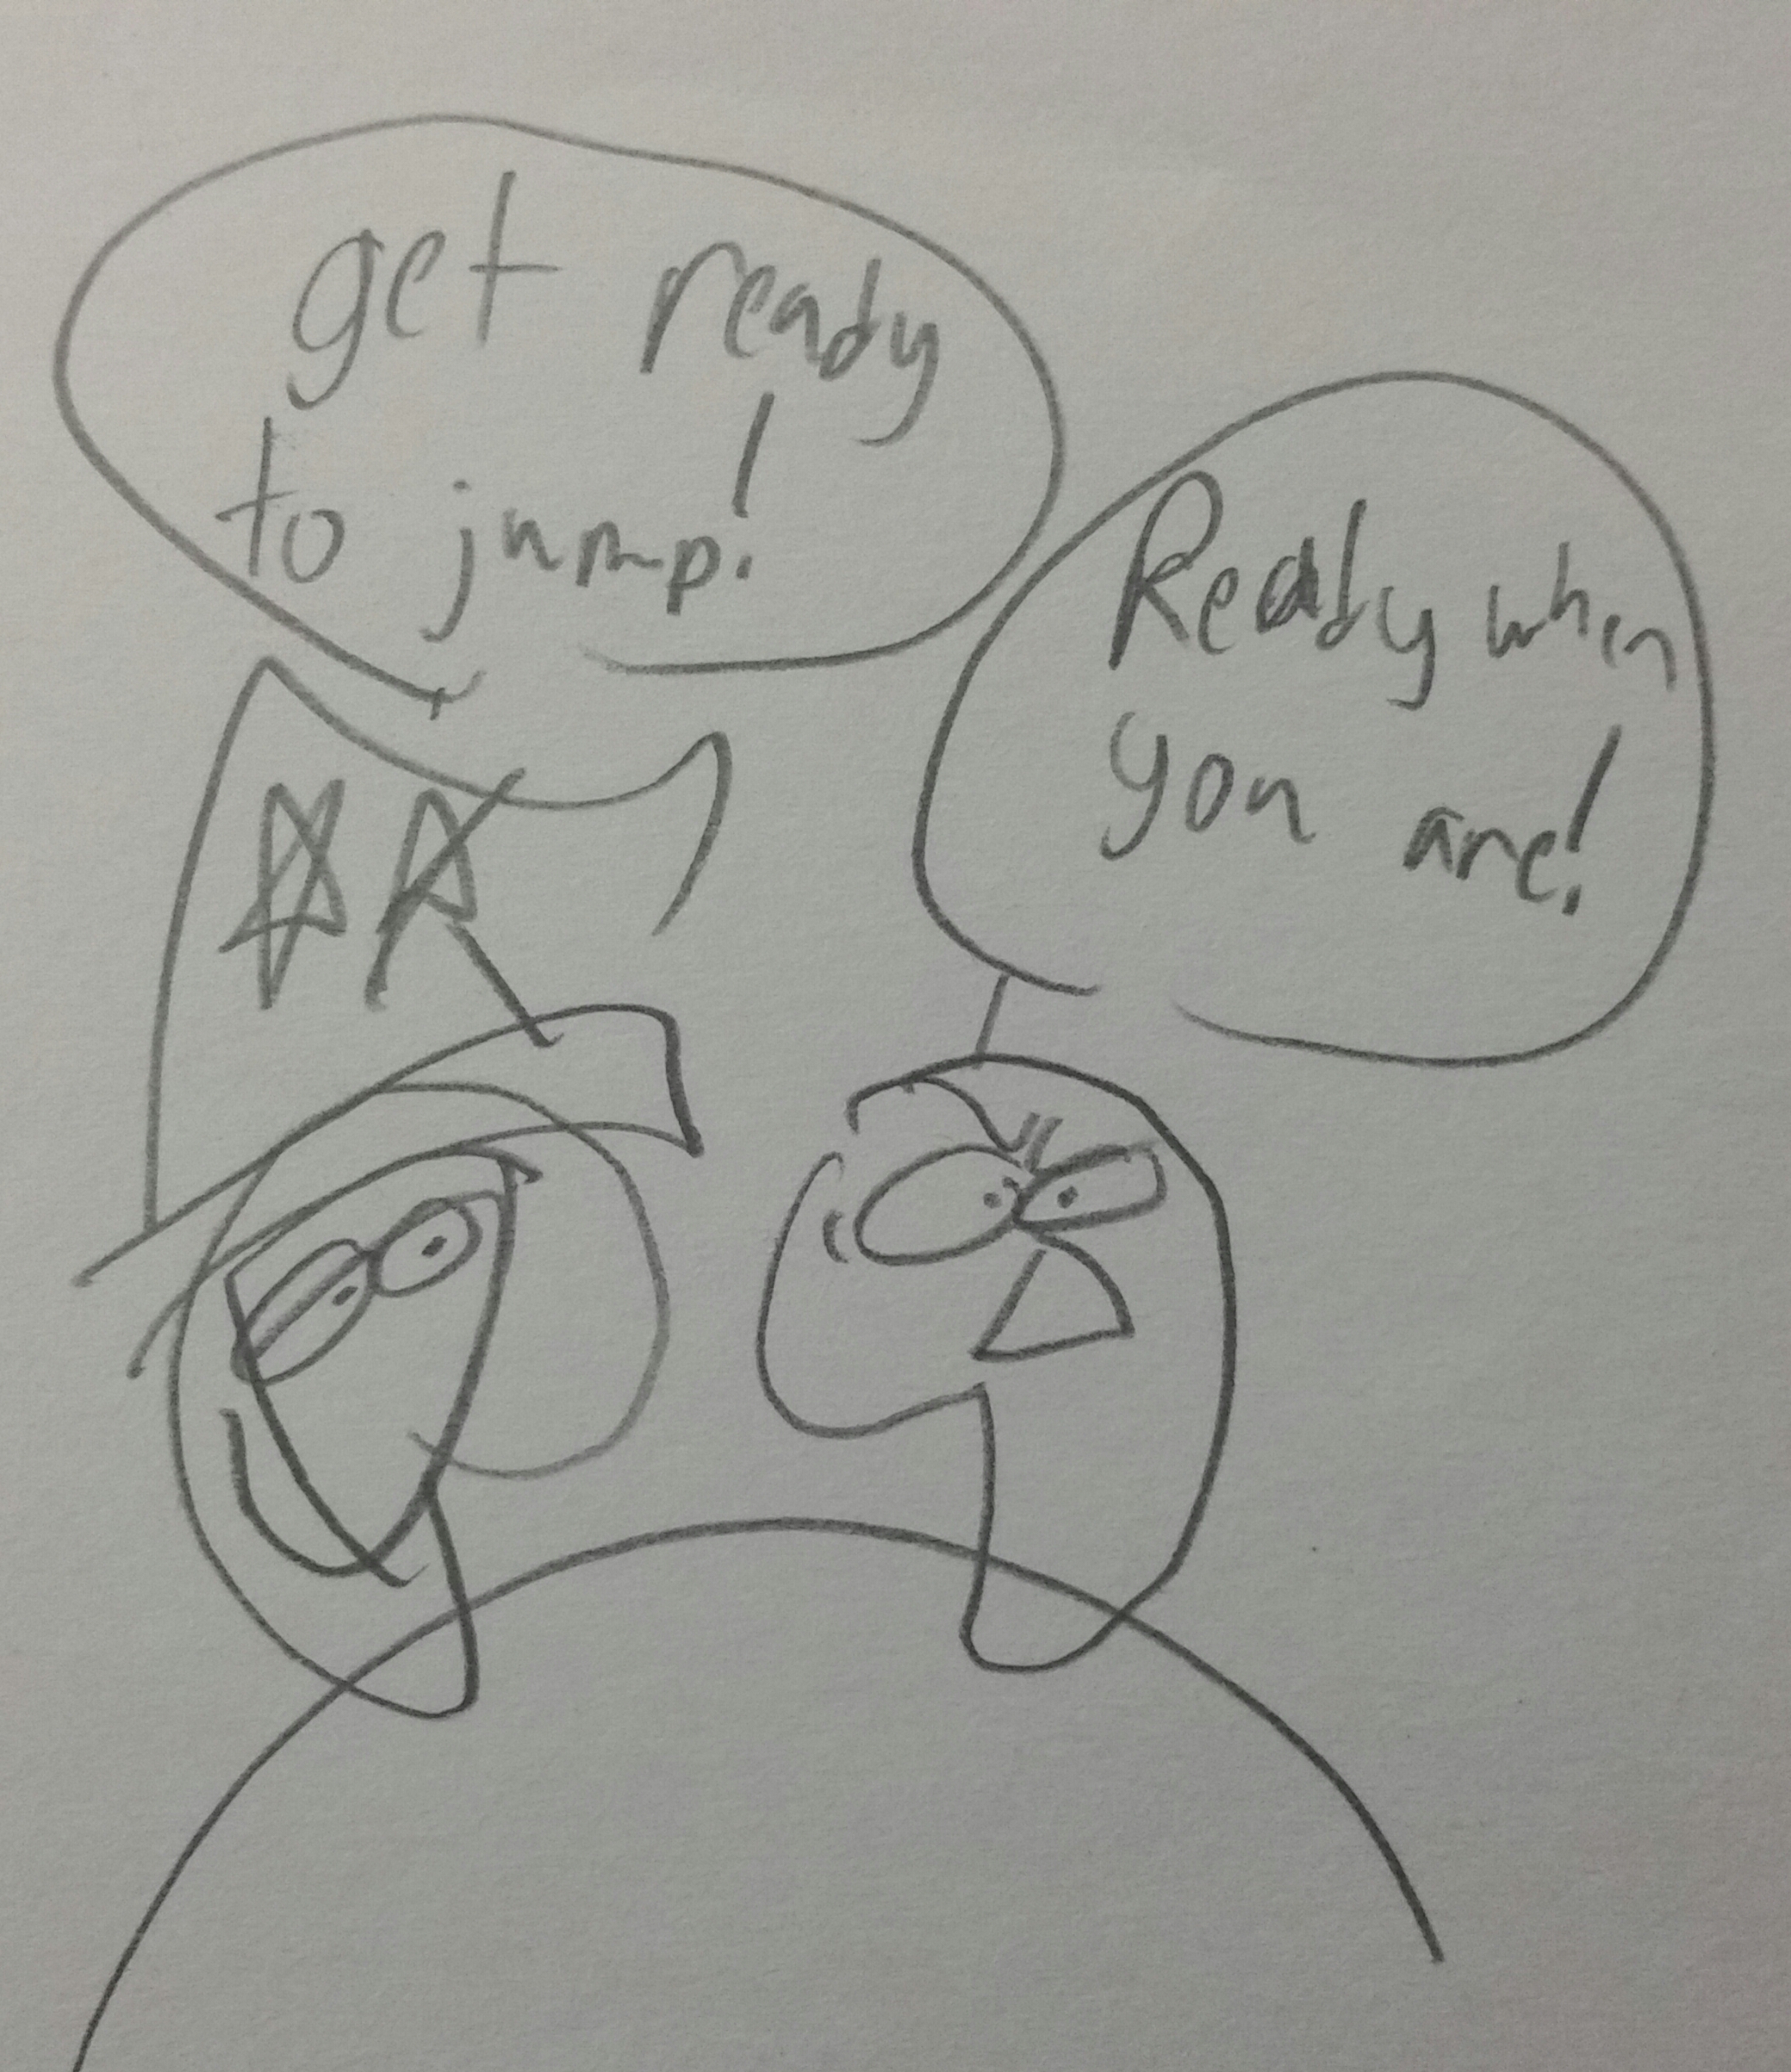 get ready
to jump!
Ready when
you are!